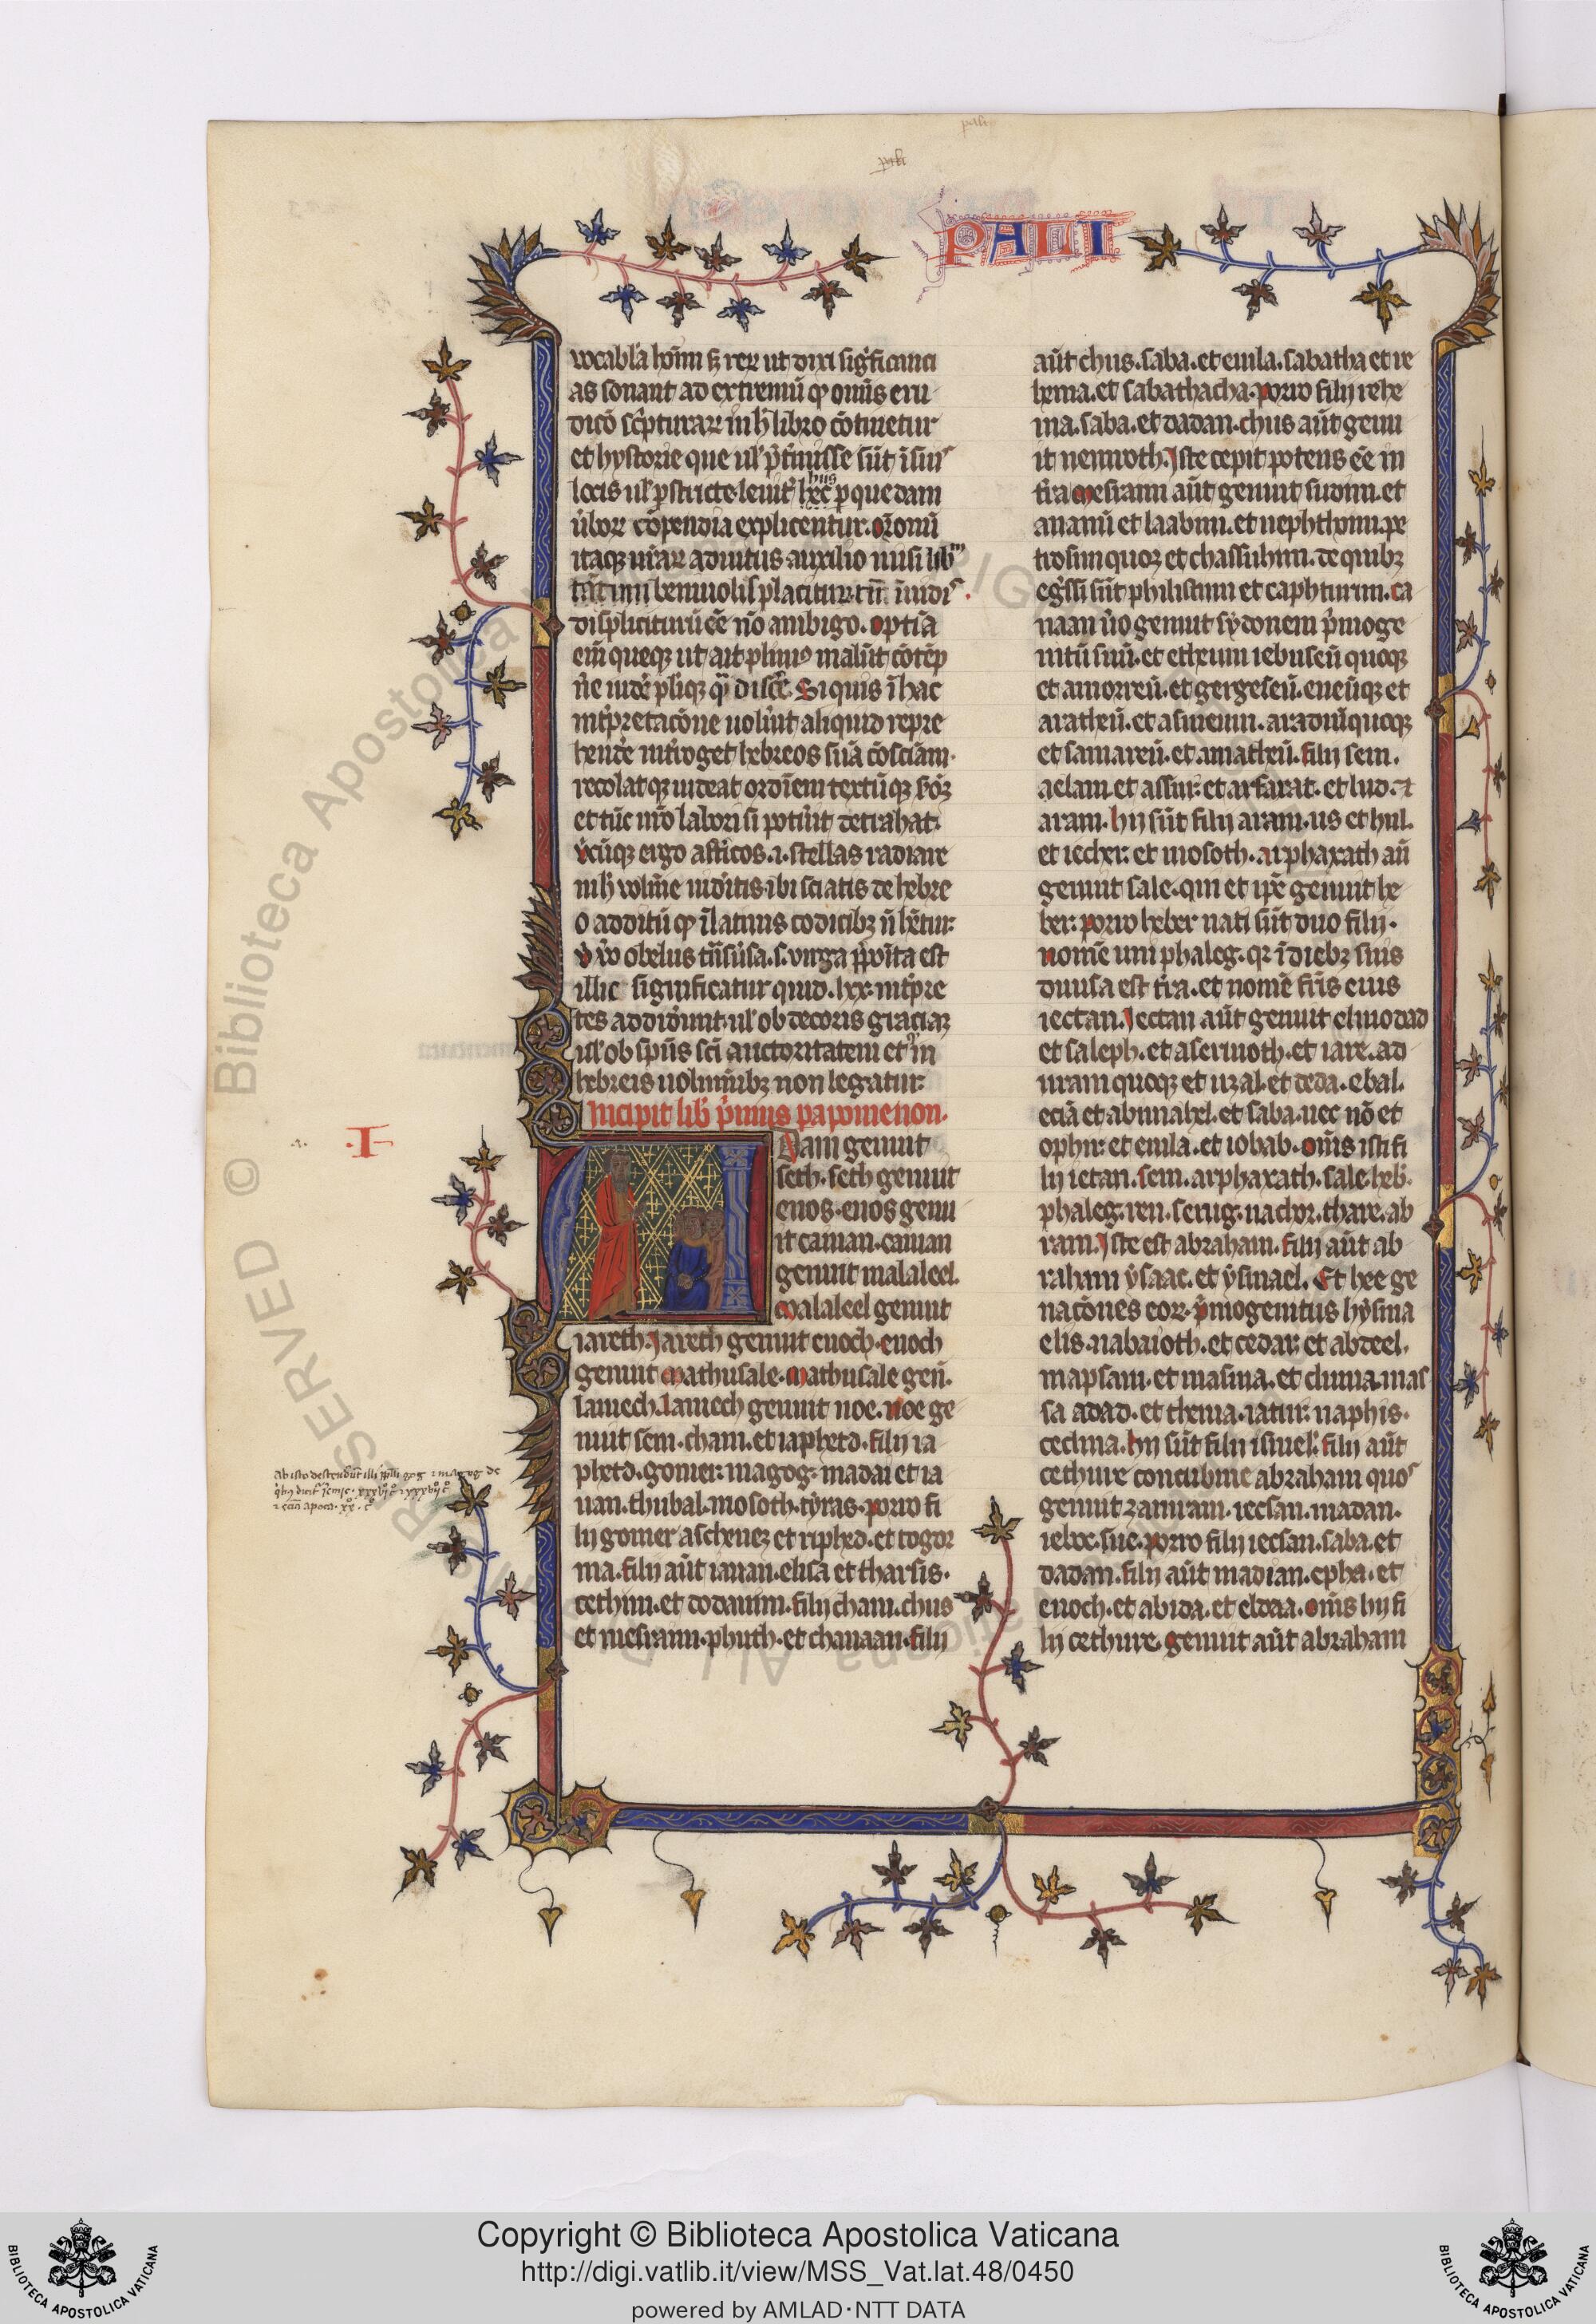 pali
pali
PALI
vocabl'a hoīm s; reꝝ ut dixi sig̾ficanci
as sonant ad extremū ꝙ om̄is eru
dicō sc̾pturaꝝ in h̾ libro cōtinetur
et hystorie que ul' p̄t̾misse sūt ī suis
locis ul' p̱stricte leuit̾ hec p̱ quedam
hiis
ūboꝝ cōpendia explicentur. orōnū
itaqꝫ ur̄aꝝ adiutus auxilio misi lib̾m
displicituꝝ eē nō ambigo. optīa
em̄ queqꝫ ut ait plinius malūt cōtēp
n̄e uidē pl̾iqꝫ q̄ disce̾. Siquis ī hac
int̾pretacōne uolūit aliquid repre
hende̾ int̾roget hebreos suā cōsciām.
recolatqꝫ uideat ordīem textūqꝫ s̾oꝫ
et tūc nr̄o labori si potūit detrahat.
v̾cūqꝫ ergo asticos .i. stellas radiare
in h̾ volūie uid̾itis ibi sciatis de hebre
o additū ꝙ ī latinis codicibꝫ n̄ hētur.
illic significatur quid .lxx. int̾pre
tes addid̾unt. ul' ob decoris graciaꝫ
ul' ob sp̄us sc̄i auctoritatem et in
hebreis uolum̄ibꝫ non legatur.
Incipit lib̾ p̾mus papomenon.
.I.
Adam genuit
seth. seth genuit
enos. enos genu
it cainan. cainan
genuit malaleel.
Malaleel genuit
iareth. Iareth genuit enoch. enoch
genuit Mathusale. Mathusale geñ.
lamech. Lamech genuit noe. Noe ge
nuit sem. cham. et iapheth. filij ia
pheth. gomer. magog. madai et ia
uan. thubal. mosoth. tyras. porro fi
lij gomer aschenez et riphed. et togor
ma. filij aūt iauan. elisa et tharsis.
cethim. et dodanim. filij cham. chus
et mesraim. phuth. et chanaan. filij
aūt chus. saba. et euila. sabatha et re
hema. et sabathacha. porro filij rehe
ma. saba. et dadan. chus aūt genu
it nemroth. Iste cepit potens eē in
t̾ra Mesraim aūt genuit ludim. et
anamī et laabim. et nephthuim. pe
trosim quoꝫ et chassuhim. de quibꝫ
eg̾ssi sūt philistiim et caphturim. ca
naan ūo genuit sydonem p̾moge
nitū suū. et etheum iebuseū quoqꝫ
et amorreū. et gergeseū. eueūqꝫ et
aratheū. et asineum. aradiūquoqꝫ
et samareū. et amatheū. filij sem.
aelam et assur. et arfarat. et lud. et
aram. hij sūt filij aram. us et hul.
et iecher. et mosoth. arphaxath aū
genuit sale. qui et ip̄e genuit he
ber. porro heber nati sūt duo filij.
nomē uni phaleg. qꝛ ī diebꝫ suis
diuisa est t̾ra. et nomē fr̄is eius
iectan. Iectan aūt genuit elmodad
et saleph. et asermoth. et iare. ad
uram quoqꝫ et uzal. et deda. ebal.
eciā et abimahel. et saba. nec nō et
ophir. et euila. et iobab. om̄s isti fi
lij ietan. sem. arphaxath. sale. heb̾.
phaleg. reu. serug. nachor. thare. ab
ram. Iste est abraham. filij aūt ab
raham ysaac. et ysmael. Et hee ge
nacōnes eoꝝ. p̾mogenitus hysma
elis. nabaioth. et cedar. et abdeel.
mapsam. et masma. et duma. mas
sa adad. et thema. iatur. naphis.
cedma. hij sūt filij ismael'. filij aūt
cethure concubine abraham quos
genuit zamram. iecsan. madan.
ieboc. sue. porro filij iecsan. saba. et
dadan. filij aūt madian. epha. et
enoch. et abida. et eldaa. om̄s hij fi
lij cethure. genuit aūt abraham
Copyright © Biblioteca Apostolica Vaticana
http://digi.vatlib.it/view/MSS_Vat.lat.48/0450
powered by AMLAD·NTT DATA
BIBLIOTECA APOSTOLICA VATICANA
BIBLIOTECA APOSTOLICA VATICANA